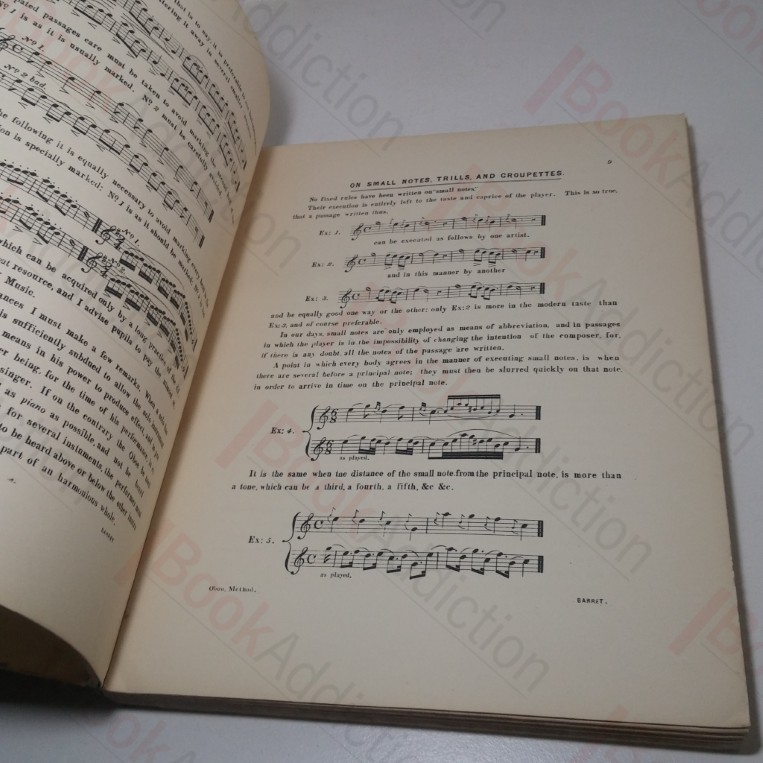 that is to say, it is
repeated passages care must be taken to avoid marking the
Nº 1 is as it is usually marked. Nº 2 must be carefully
Nº 1.
Nº 2 bad.
the following it is equally necessary to avoid marking
is specially marked: Nº 1 is as it should be
Nº 1.
which can be acquired only by a long
resource, and I advise pupils to pay the
Music.
I must make a few remarks. When a
is sufficiently subdued to allow the
means in his power to produce effect, and
being, for the time of his performance
singer. If on the contrary the Oboe
as piano as possible, and not be
for several instruments, the performer must
to be heard above or below the other
part of an harmonious whole.
ON SMALL NOTES, TRILLS, AND GROUPETTES.
No fixed rules have been written on "small notes."
Their execution is entirely left to the taste and caprice of the player. This is so true,
that a passage written thus,
Ex: 1.
can be executed as follows by one artist,
Ex: 2.
and in this manner by another
Ex: 3.
and be equally good one way or the other; only Ex: 2 is more in the modern taste than
Ex: 3, and of course preferable.
In our days, small notes are only employed as means of abbreviation, and in passages
in which the player is in the impossibility of changing the intention of the composer, for,
if there is any doubt, all the notes of the passage are written.
A point in which every body agrees in the manner of executing small notes, is when
there are several before a principal note; they must then be slurred quickly on that note,
in order to arrive in time on the principal note.
Ex: 4.
as played.
It is the same when the distance of the small note from the principal note, is more than
a tone, which can be a third, a fourth, a fifth, &c &c.
Ex: 5.
as played.
Oboe, Method.
BARRET.
BookAddiction